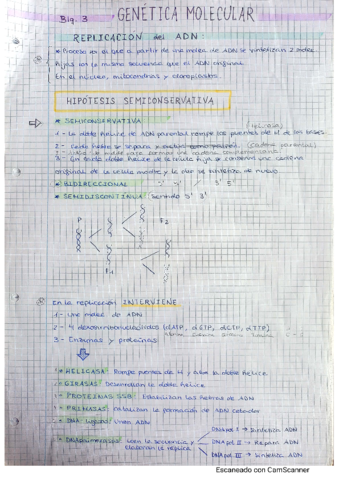 Big. 3
GENÉTICA MOLECULAR
REPLICACIÓN del ADN:
Proceso en el que a partir de una molec de ADN se sintetizan 2 molec
hijas con la misma secuencia que el ADN original
En el núcleo, mitocondrias y cloroplastos
HIPÓTESIS SEMICONSERVATIVA
* SEMICONSERVATIVA (Helicasa)
1- La doble hélice de ADN parental rompe los puentes de H de las bases
2- Cada hebra se separa y (cadena parental)
3- En cada doble hélice de la célula hija se conserva una cadena
original de la célula madre y la otra se sintetiza de nuevo
* BIDIRECCIONAL
* SEMIDISCONTINUA Sentido 5' 3'
P F2
F1
En la replicación INTERVIENE
1- Una molec de ADN
2- 4 desoxirribonucleótidos (dATP, dGTP, dCTP, dTTP)
3- Enzimas y proteínas
HELICASA Rompe puentes de H y abre la doble hélice
GIRASAS: Desenrollan la doble hélice
PROTEÍNAS SSB: Estabilizan las hebras de ADN
PRIMASAS: catalizan la formación de ARN cebador
DNA ligasa: Unen ADN
DNA polimerasas: Leen la secuencia y
elaboran la réplica
DNA pol I → Sintetiza ADN
DNA pol II → Repara ADN
DNA pol III → Sintetiza ADN
Escaneado con CamScanner